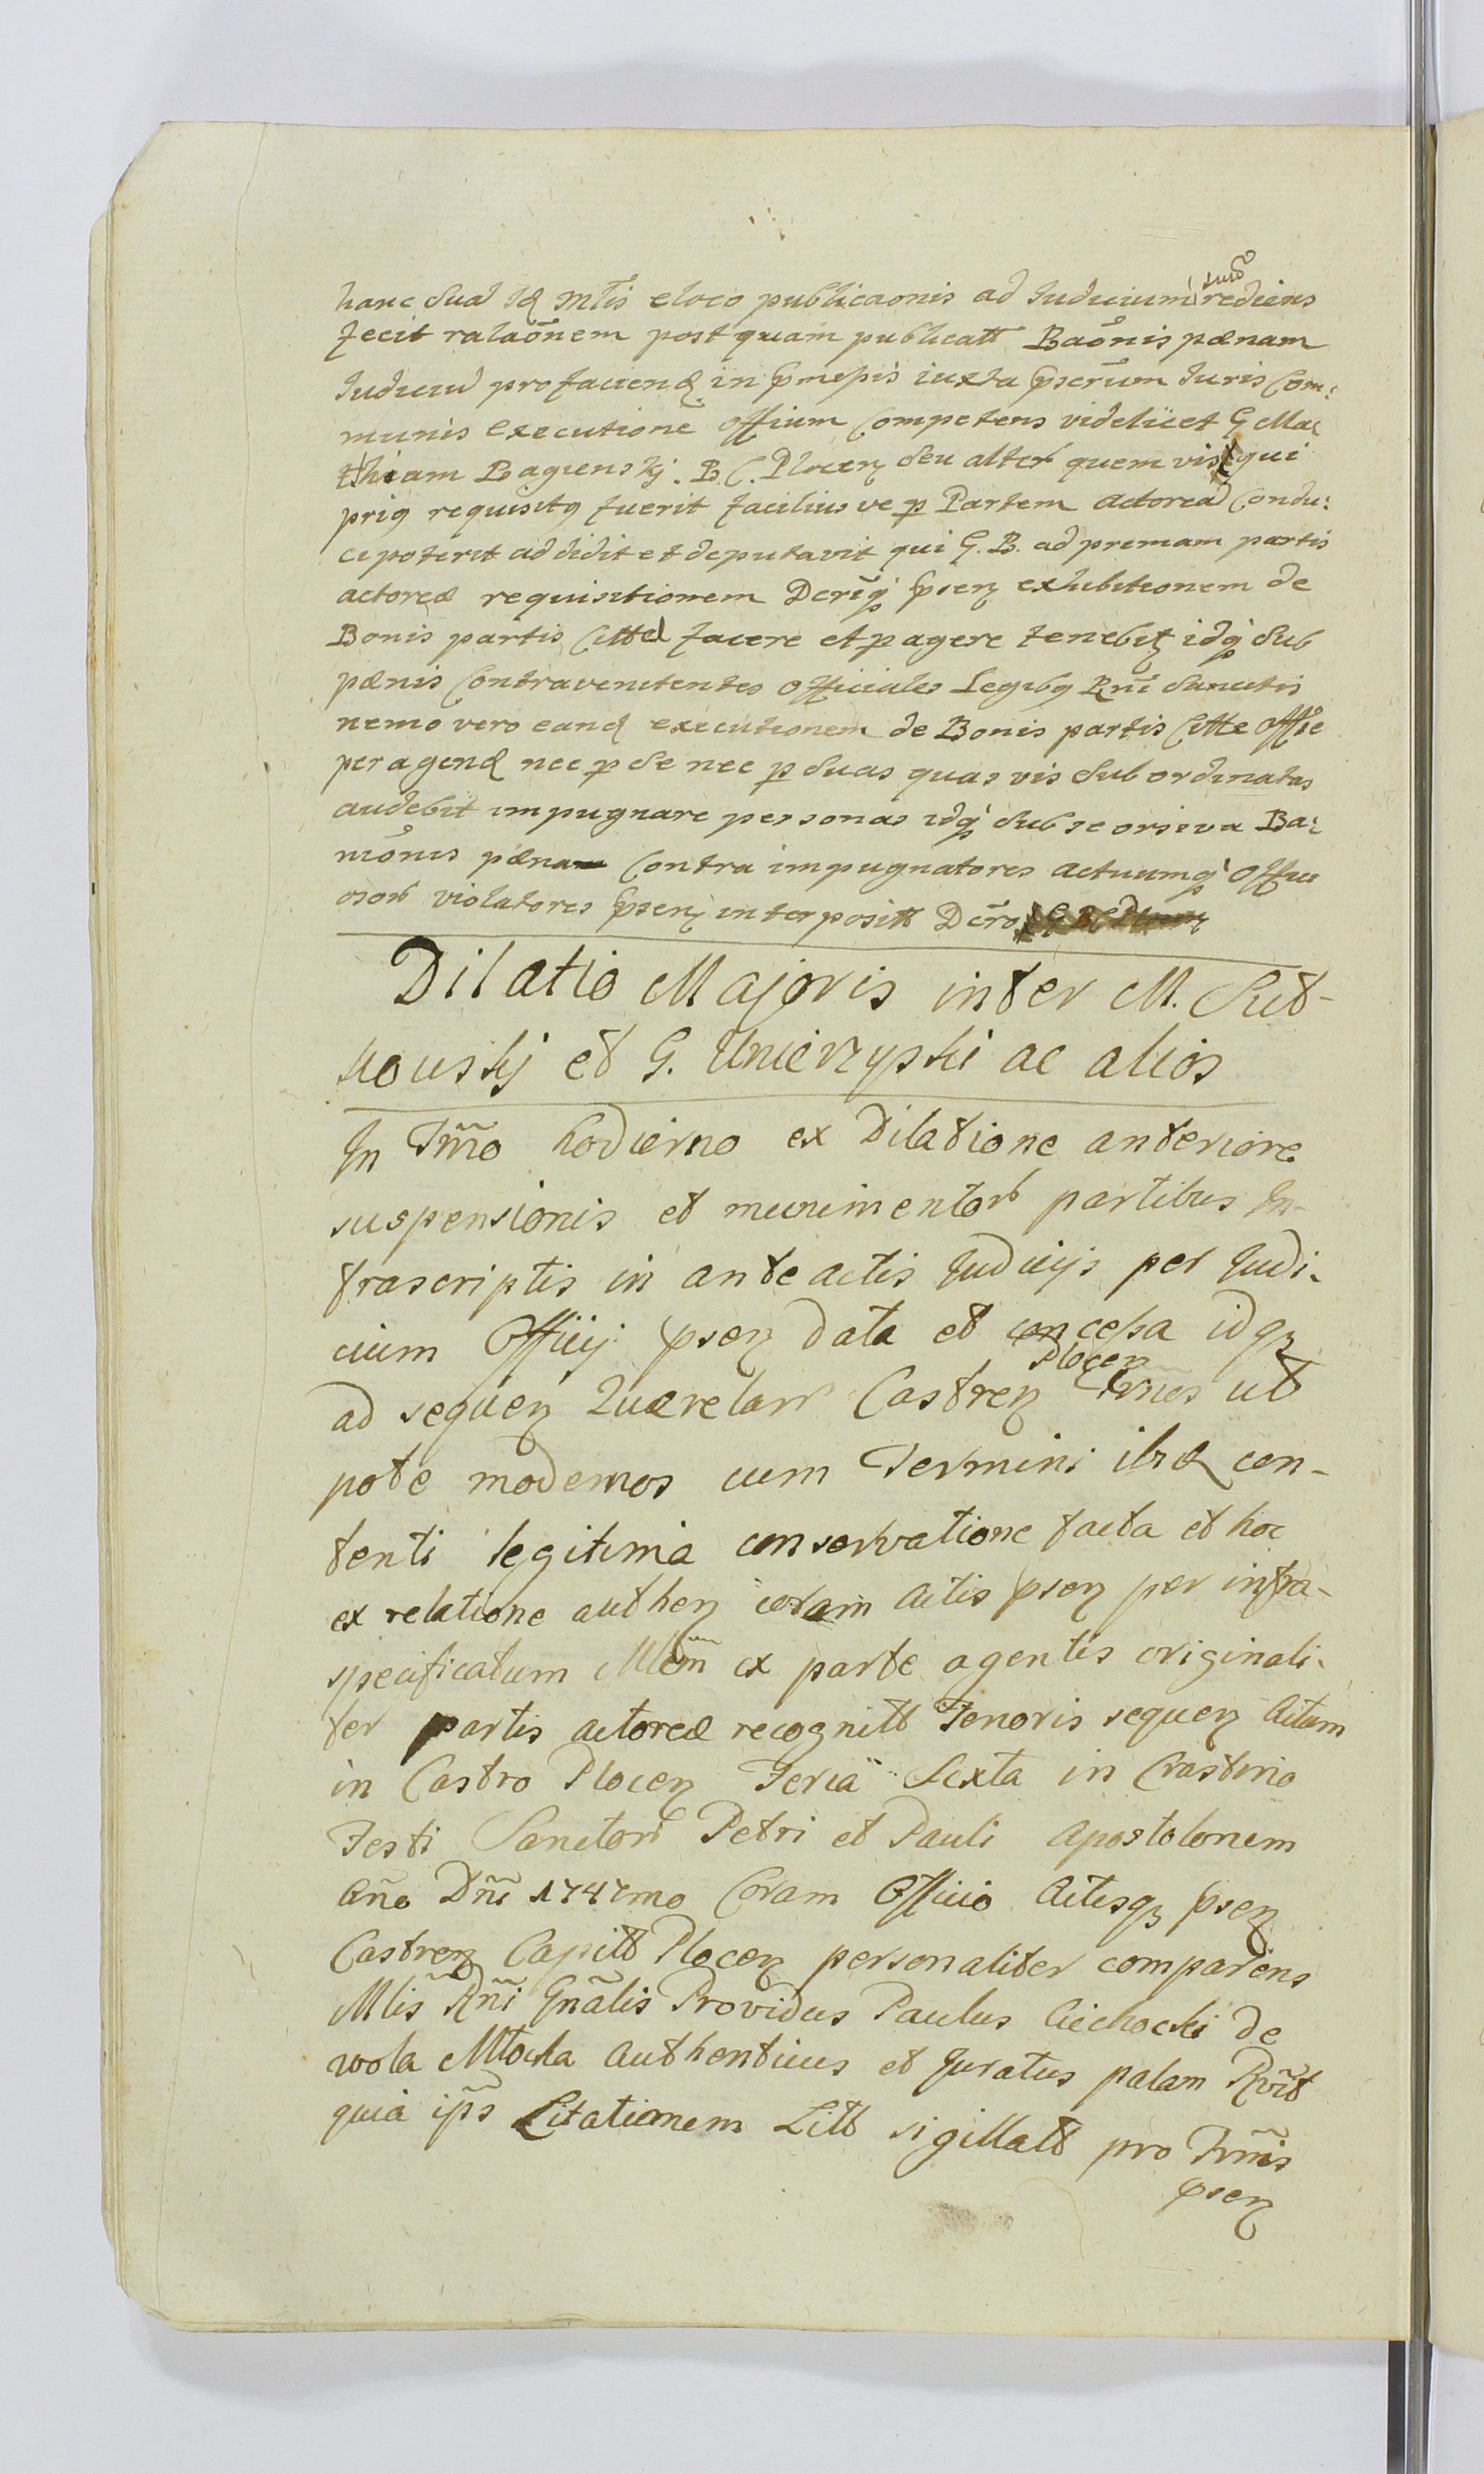 hanc sua Id Mlis e loco publicaonis ad Iudicium suū rediens
fecit ralaōnem post quam publicatt Baōnis pænam
Iudiciū pro faciend in pmepis iuxta pscrūm Iuris Com:
munis executionē offium Competens videlicet G Mat
thiam Bagienskj B. C. Plocen seu alter quem vis qui
priq requisitq fuerit facilius ve p Partem actorea Condu:
ci poterit addidit et deputavit qui G. B. ad primam partis
actoreæ requisitionem Dcriq psen exhibitionem de
Bonis partis Citte facere et p agere tenebit idq sub
pænis Contravenientes officiales Legibq Rni sancitis
nemo vero eand executionem de Bonis partis Citte offie
peragend nec p se nec p suas quas vis subordinatas
audebit impugnare personas idq sub se orsiva Ba:
niōnis pæna Contra impugnatores actuumq offici
osor violatores psen interpositt Dcro
Dilatio Majoris inter M. Sut-
kouskj et G. Unierzyski ac alios
In Tm̃o hodierno ex Dilatione anteriore
suspensionis et munimentor partibus In-
frascriptis in ante actis Iudicijs per Iudi-
cium Officij psen data et concessa idq
ad sequen Quærelar Castren Plocen Trnos ut
pote modernos cum Termini ibid con-
tenti legitima conservatione facta et hoc
ex relatione authen coram actis psen per infra-
specificatum Mlem ex parte agentis originali-
ter partis actoreæ recognitt Tenoris sequen Actum
in Castro Plocen Feria Sexta in Crastino
Festi Sanctor Petri et Pauli Apostolorum
Año Dñi 1747mo Coram Officio Actisq psen
Castren Capitt Plocen personaliter comparens
Mlis Rñi Gñalis Providus Paulus Ciechocki de
wola Młocka Authenticus et Juratus palam Rvit
quia ips Citationem Litt sigillatt pro Trmis
psen